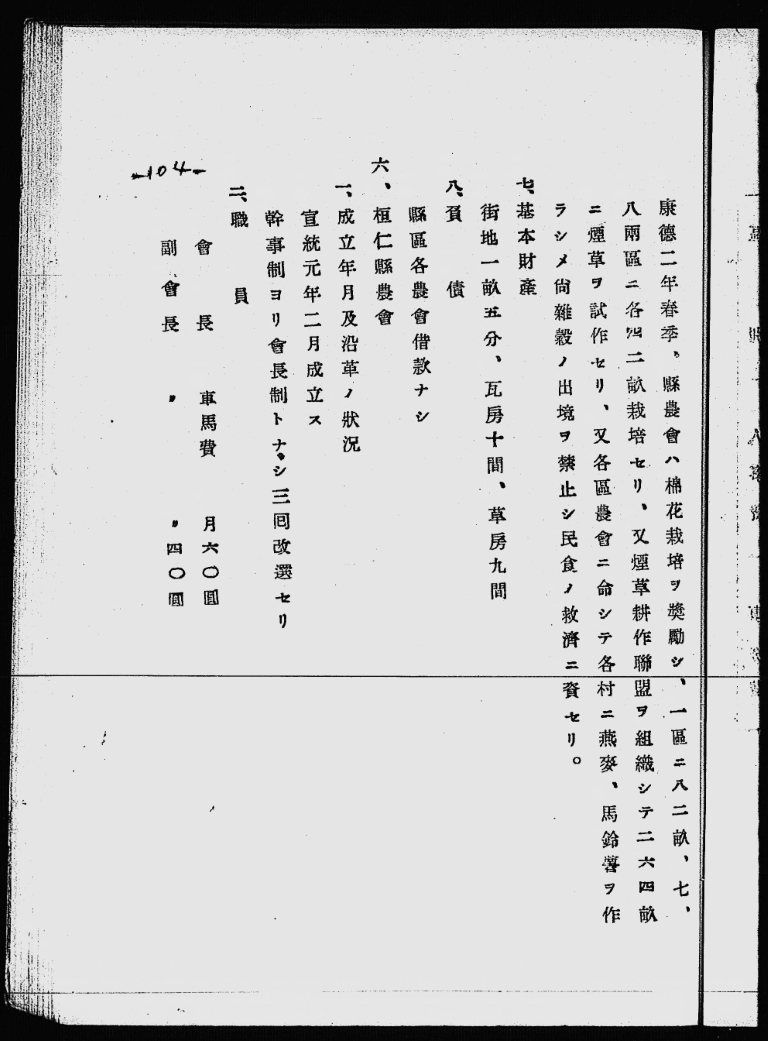 康德二年春季、縣農會ハ棉花栽培ヲ奬勵シ、一區ニ八二畝、七、
八兩區ニ各四二畝栽培セリ、又煙草耕作聯盟ヲ組織シテ二六四畝
ニ煙草ヲ試作セリ、又各區農會ニ命シテ各村ニ燕麥、馬鈴薯ヲ作
ラシメ尚雜穀ノ出境ヲ禁止シ民食ノ救濟ニ資セリ。
七、基本財產
街地一畝五分、瓦房十間、草房九間
八、負債
縣區各農會借款ナシ
六、桓仁縣農會
一、成立年月及沿革ノ狀況
宣統元年二月成立ス
幹事制ヨリ會長制トナシ三回改選セリ
二、職員
會長 車馬費 月六〇圓
副會長 〃 〃四〇圓
-104-